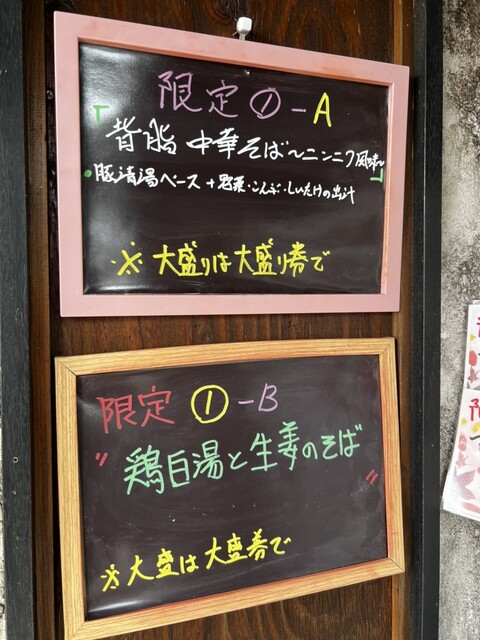 限定①-A
「背脂中華そば～ニンニク風味～」
・豚清湯ベース+野菜・こんぶ・しいたけの出汁
※大盛りは大盛り券で
限定①-B
"鶏白湯と生姜のそば"
※大盛は大盛券で